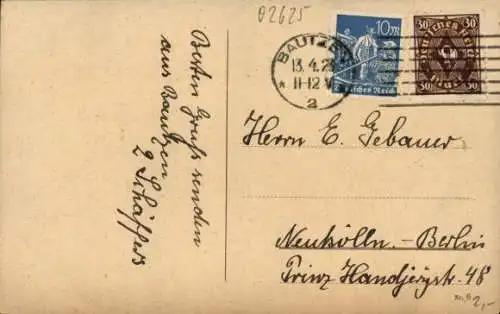 02625
BAUTZEN
13.4.23
11-12 V
* a
10 M
Deutsches Reich
30 30
Deutsches Reich
30 30
Besten Gruß senden
aus Bautzen
2 Schäffers
Herrn E. Gebauer
Neukölln.-Berlin
Prinz Handjerystr. 48
2,-